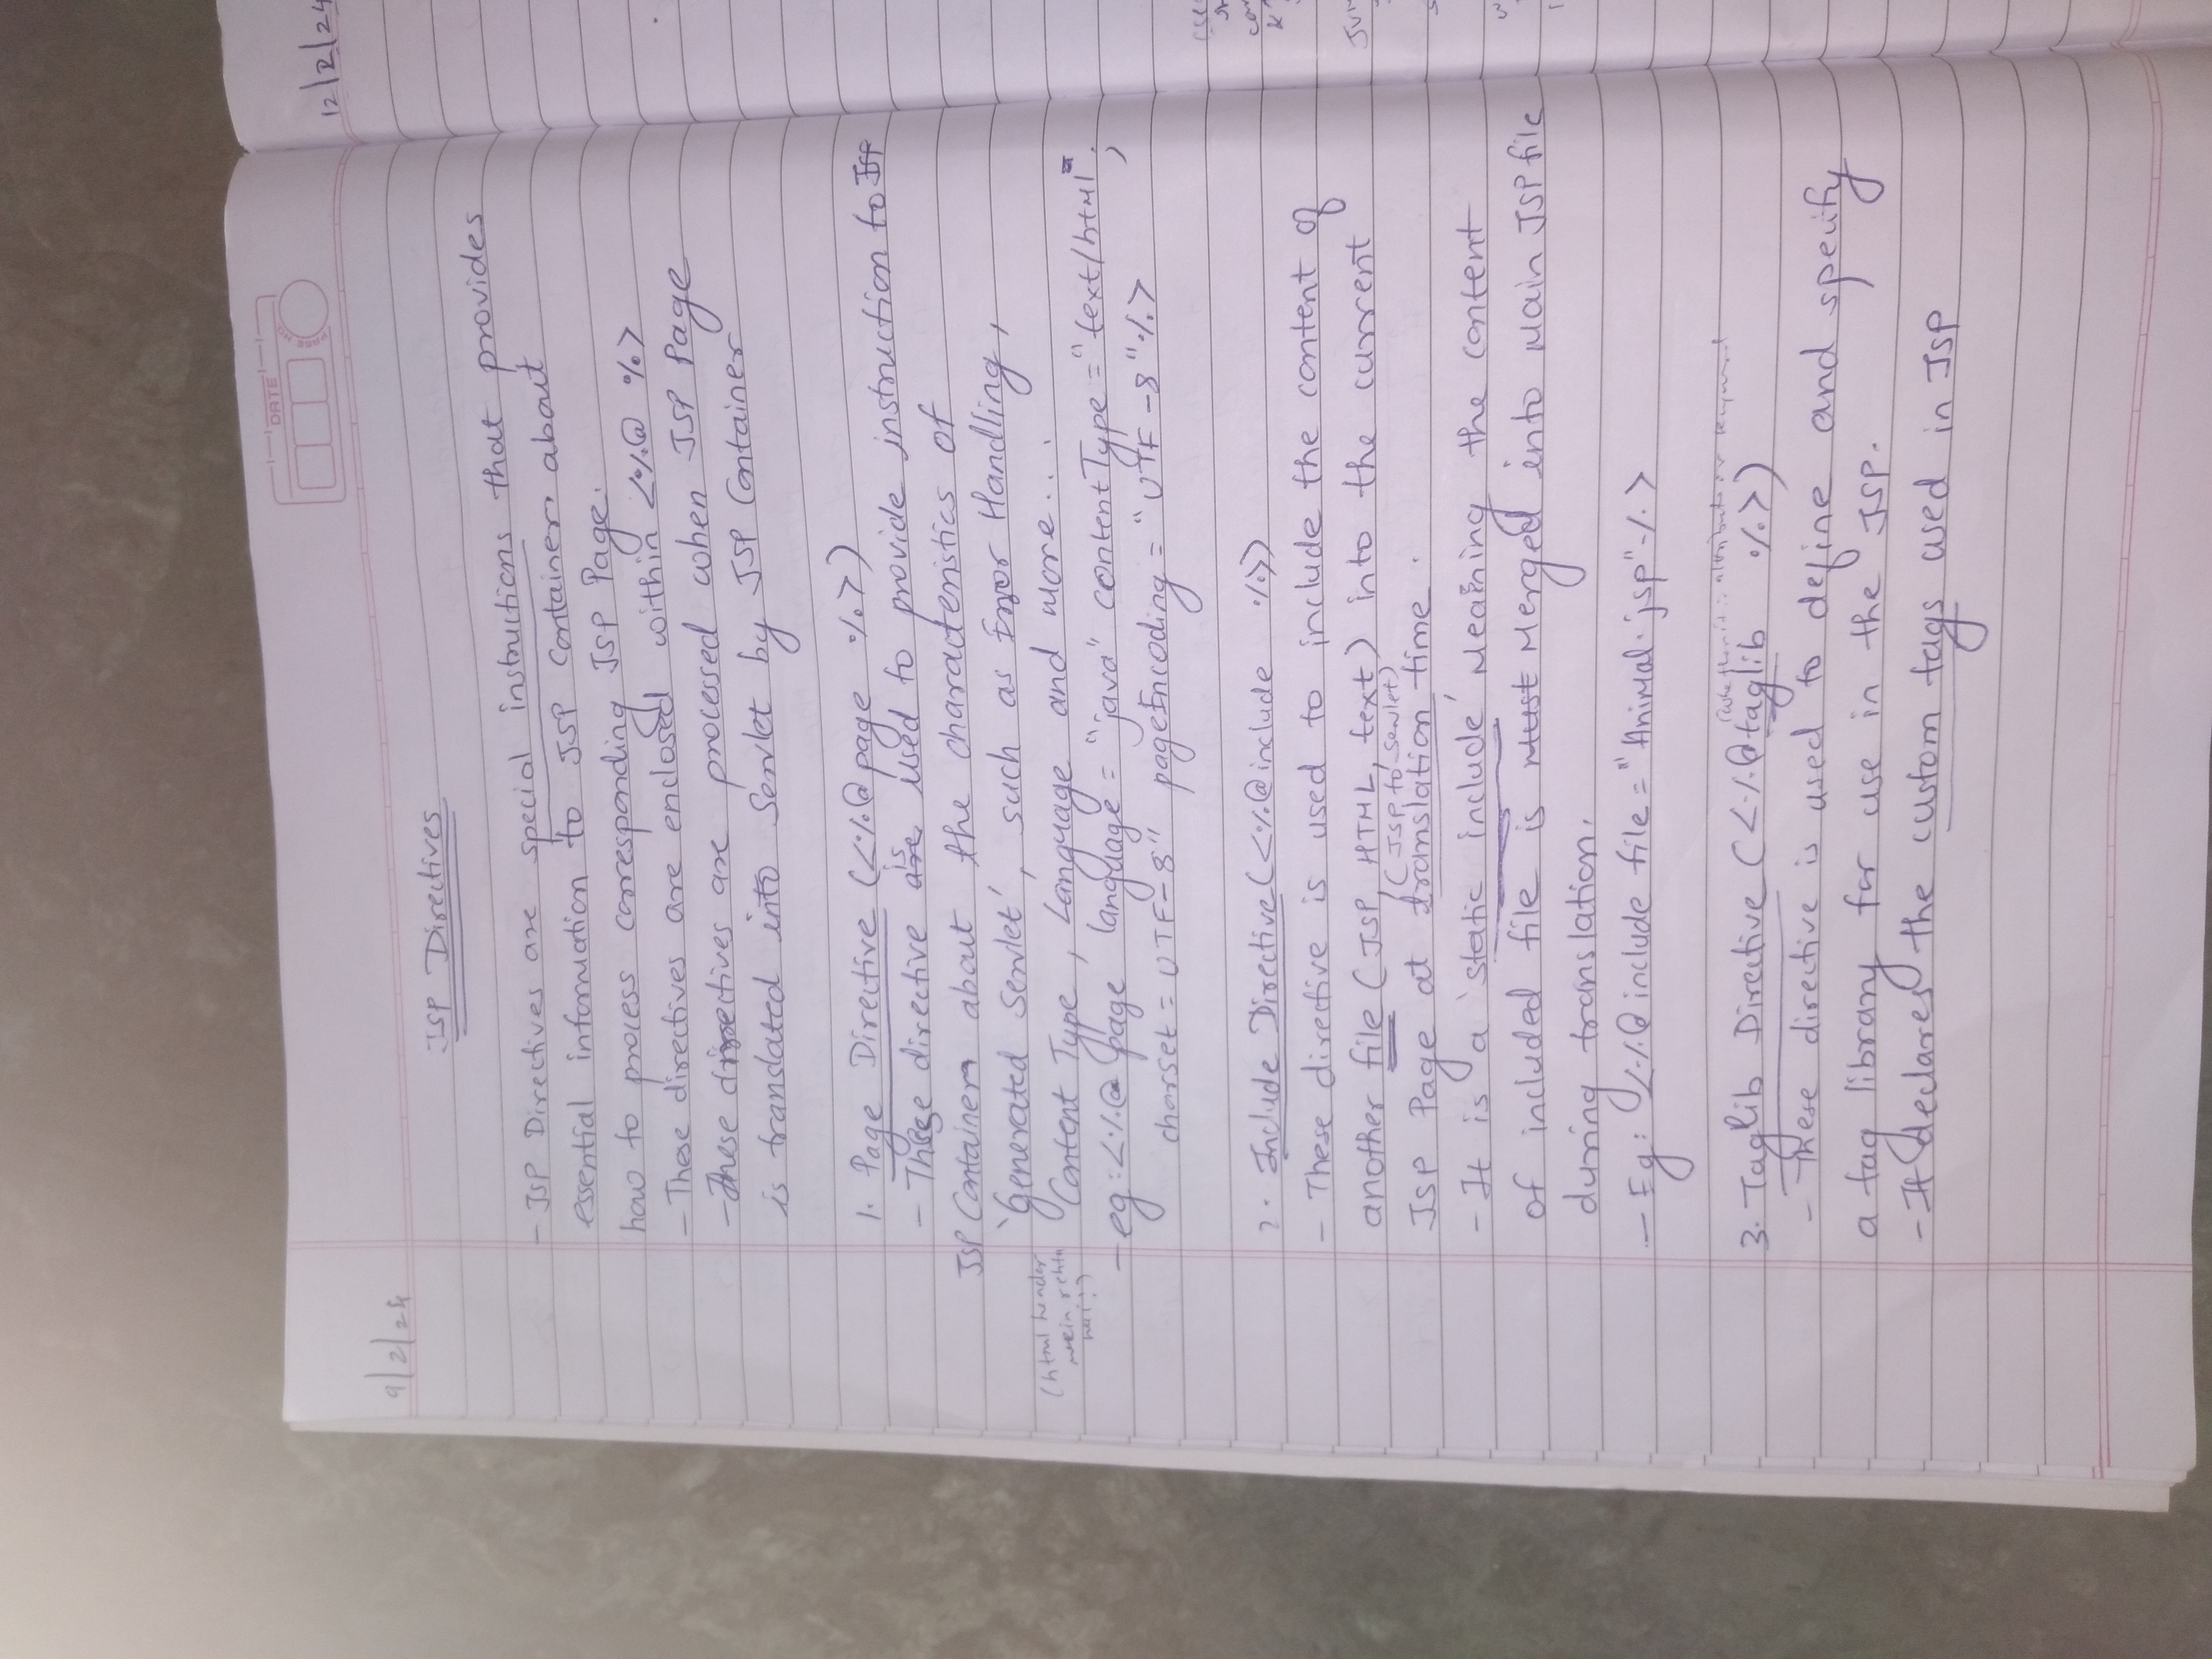 DATE
PAGE NO.
12/2/24
9/2/24
JSP Directives
- JSP Directives are special instructions that provides
essential information to JSP Container about
how to process corresponding JSP Page.
- These directives are enclosed within <%@ %>
- These directives are processed when JSP Page
is translated into Servlet by JSP Container
1. Page Directive (<%@ page %>)
- These directive are is used to provide instruction to JSP
JSP Container about the characteristics of
'Generated Servlet', such as Error Handling,
(html header
mein rehta
hai!!)
Content Type, Language and more...
- eg: <%@ page language = "java" contentType = "text/html";
charset = UTF-8" pageEncoding = "UTF-8" %>
2. Include Directive (<%@ include %>)
- These directive is used to include the content of
another file (JSP, HTML, text) into the current
(JSP to Servlet)
JSP Page at translation time.
- It is a 'static include' Meaning the content
of included file is Must Merged into Main JSP file
during translation.
- Eg: <%@ include file = "Animal.jsp" %>
attribute or keyword
3. Taglib Directive (<%@ taglib %>)
- These directive is used to define and specify
a tag library for use in the JSP.
- It declares the custom tags used in JSP